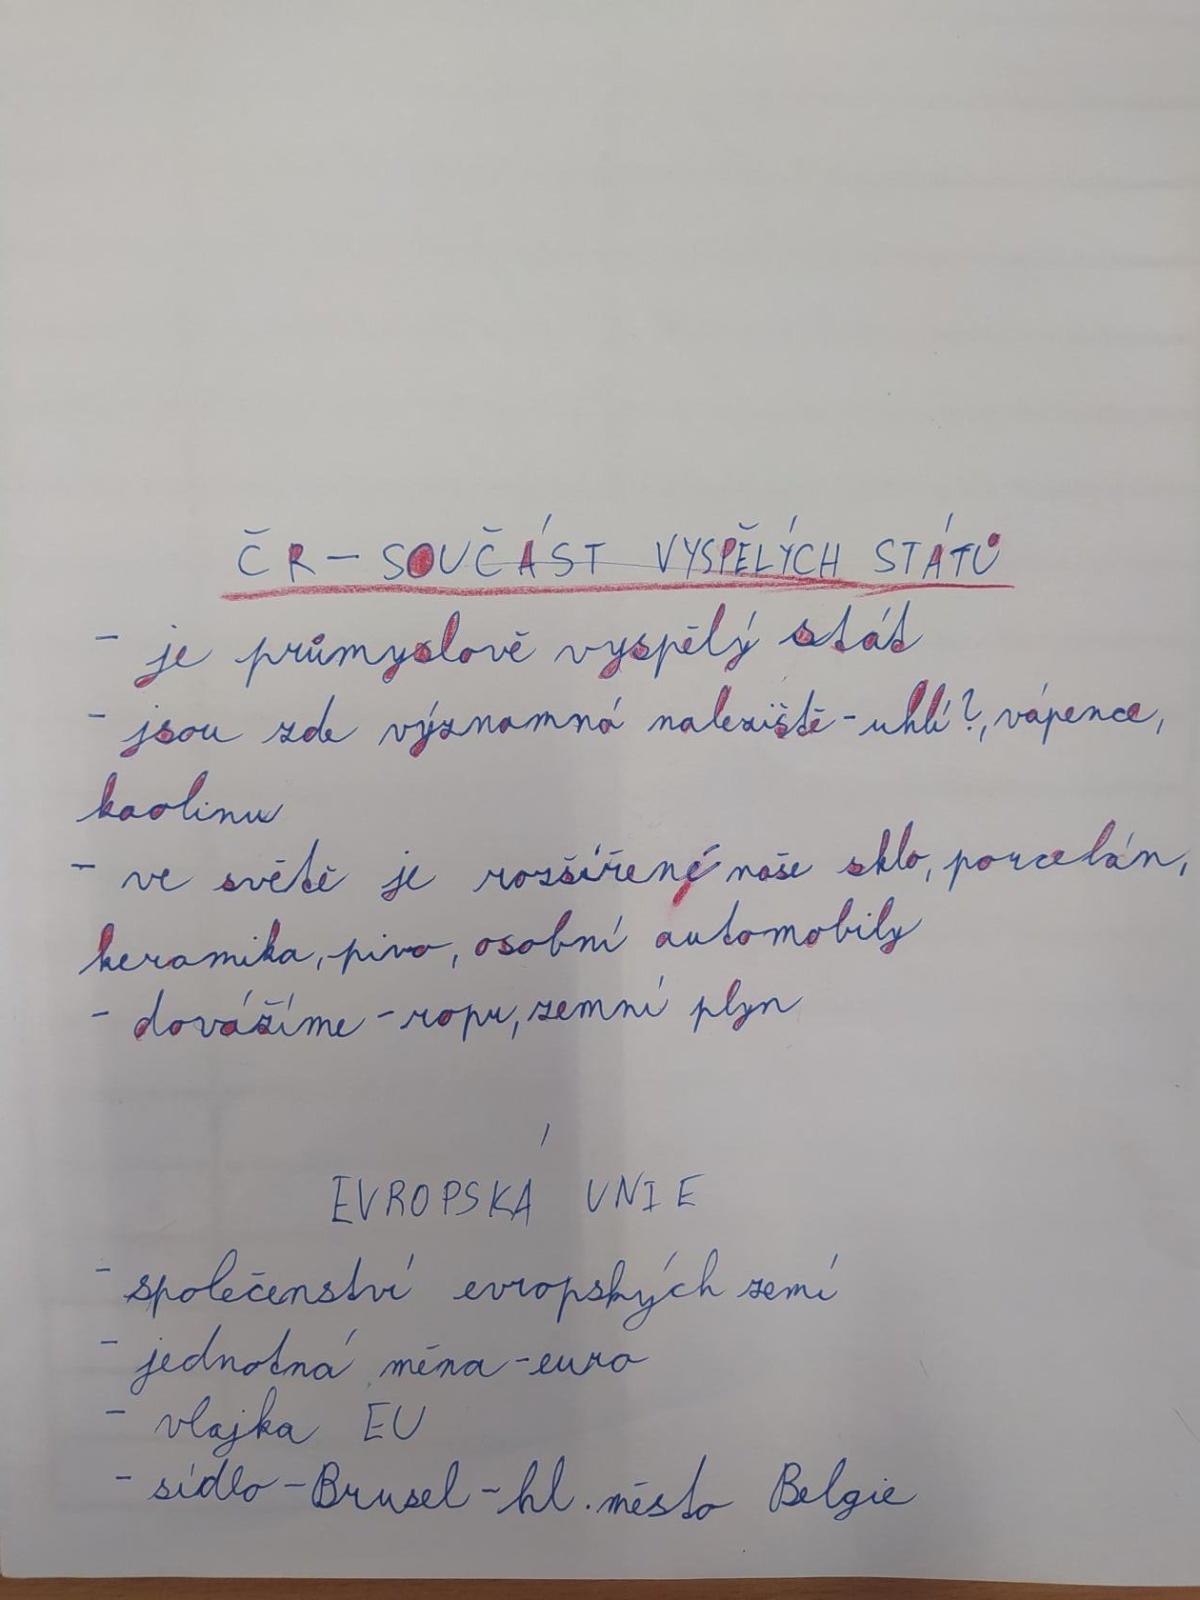 ČR – SOUČÁST VYSPĚLÝCH STÁTŮ
- je průmyslově vyspělý stát
- jsou zde významná naleziště - uhlí?, vápence,
kaolinu
- ve světě je rozšířené naše sklo, porcelán,
keramika, pivo, osobní automobily
- dovážíme - ropu, zemní plyn
EVROPSKÁ UNIE
- společenství evropských zemí
- jednotná měna - euro
- vlajka EU
- sídlo - Brusel - hl. město Belgie